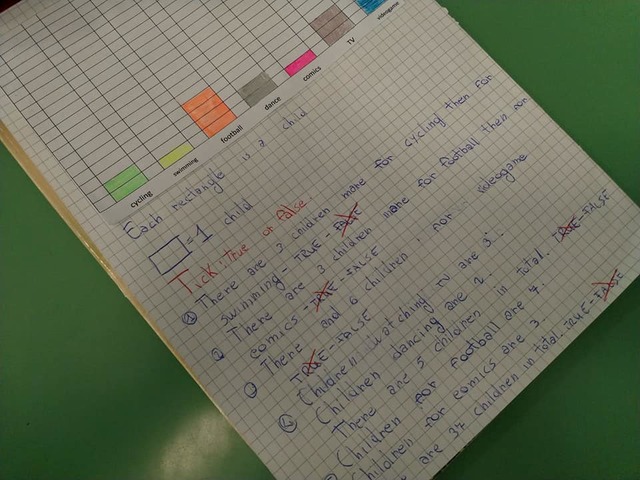 cycling
swimming
football
dance
comics
TV
videogame
Each rectangle is a child
= 1 child
Tick: True or False
There are 3 children more for cycling then for
swimming - TRUE - FALSE
There are 3 children more for football then for
comics - TRUE - FALSE
There and 6 children for videogame
TRUE - FALSE
Children watching TV are 3.
Children dancing are 2.
There are 5 children in total. TRUE - FALSE
Children for football are 4
Children for comics are 3
are 37 children in total. TRUE - FALSE